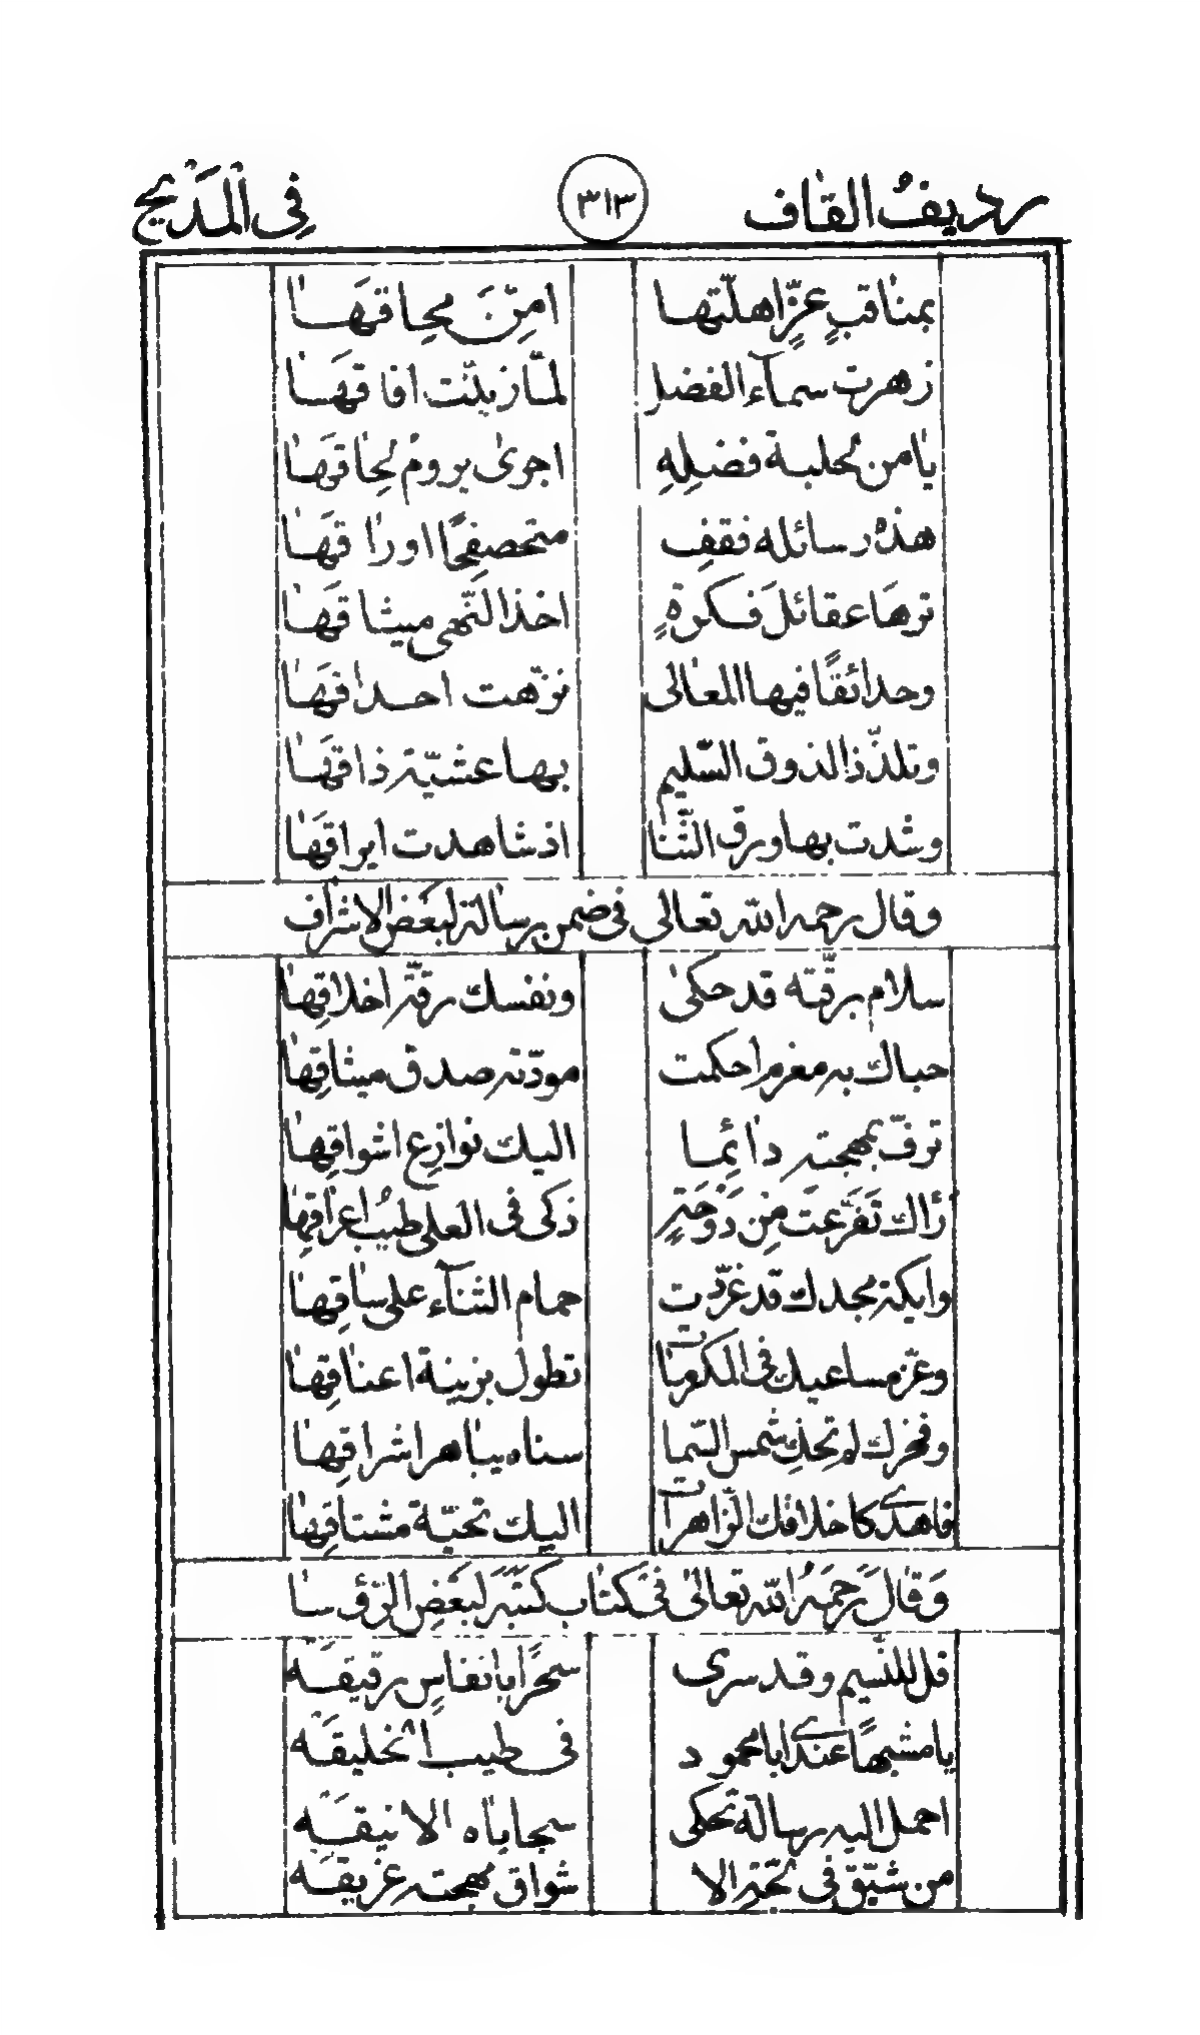 رديفُ القاف ٣١٣ في المَديح
بمناقبٍ عزٍّ اهلّتها امِنَّ محِاقهَا
زهرت سمآء الفضل لمّا زيّنت افاقهَا
يا من لحلبة فضلِهِ اجرى يروم لِحاقهَا
هذه رسائله فقفِ متصفحًا اوراقهَا
ترهَا عقائلَ فكرةٍ اخذ النّهى ميثاقهَا
وحدائقًا فيها المعالى نزّهت احداقهَا
وتلذّذ الذوق السّليم بها عشيّة ذاقهَا
وشدت بها ورق الثّنا اذ شاهدت ايراقهَا
وقال رحمه الله تعالى فى ضمن رسالة لبعض الاشراف
سلام برقّته قد حكى ونفسك رقّة اخلاقِها
حباك به مغرم احكمت مودّته صدق ميثاقِها
ترفّ بمهجته دائِما اليك نوازع اشواقِها
رأاك تَفَرَّعتَ مِن دَوحَةٍ ذكى فى العلى طيبُ اعراقِها
وايكة مجدك قد غرّدت حمام الثنآء على ساقِها
وعزم مساعيك فى المكرمات تطول بزينة اعناقِها
وفخرك لم تحكِ شمس السّما سناه بباهر اشراقِها
فاهدى كاخلاقك الزّاهرات اليك تحيّة مشتاقِها
وَقالَ رَحِمَهُ الله تعالى فى كتاب كَتَبَهَ لبَعَضِ الرّؤسا
قل للنّسيم وقد سرى سحَرًا بانفاسٍ رقيقَه
يا مشبهًا عندى ابا محمود فى طيب الخليقَه
احمل اليه رسالة تحكى سجاياه الانيقَه
من شيّق فى لجّة الا شواق مهجته غريقَه